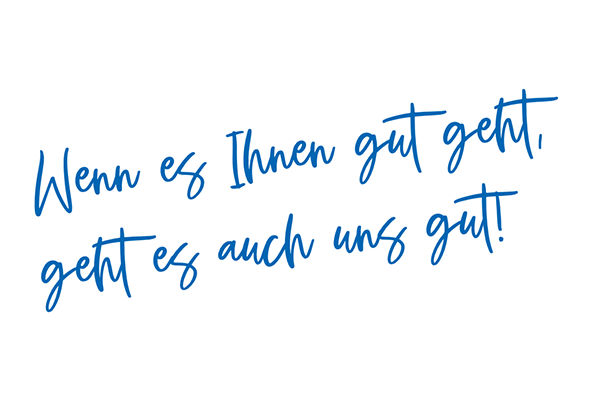 Wenn es Ihnen gut geht,
geht es auch uns gut!